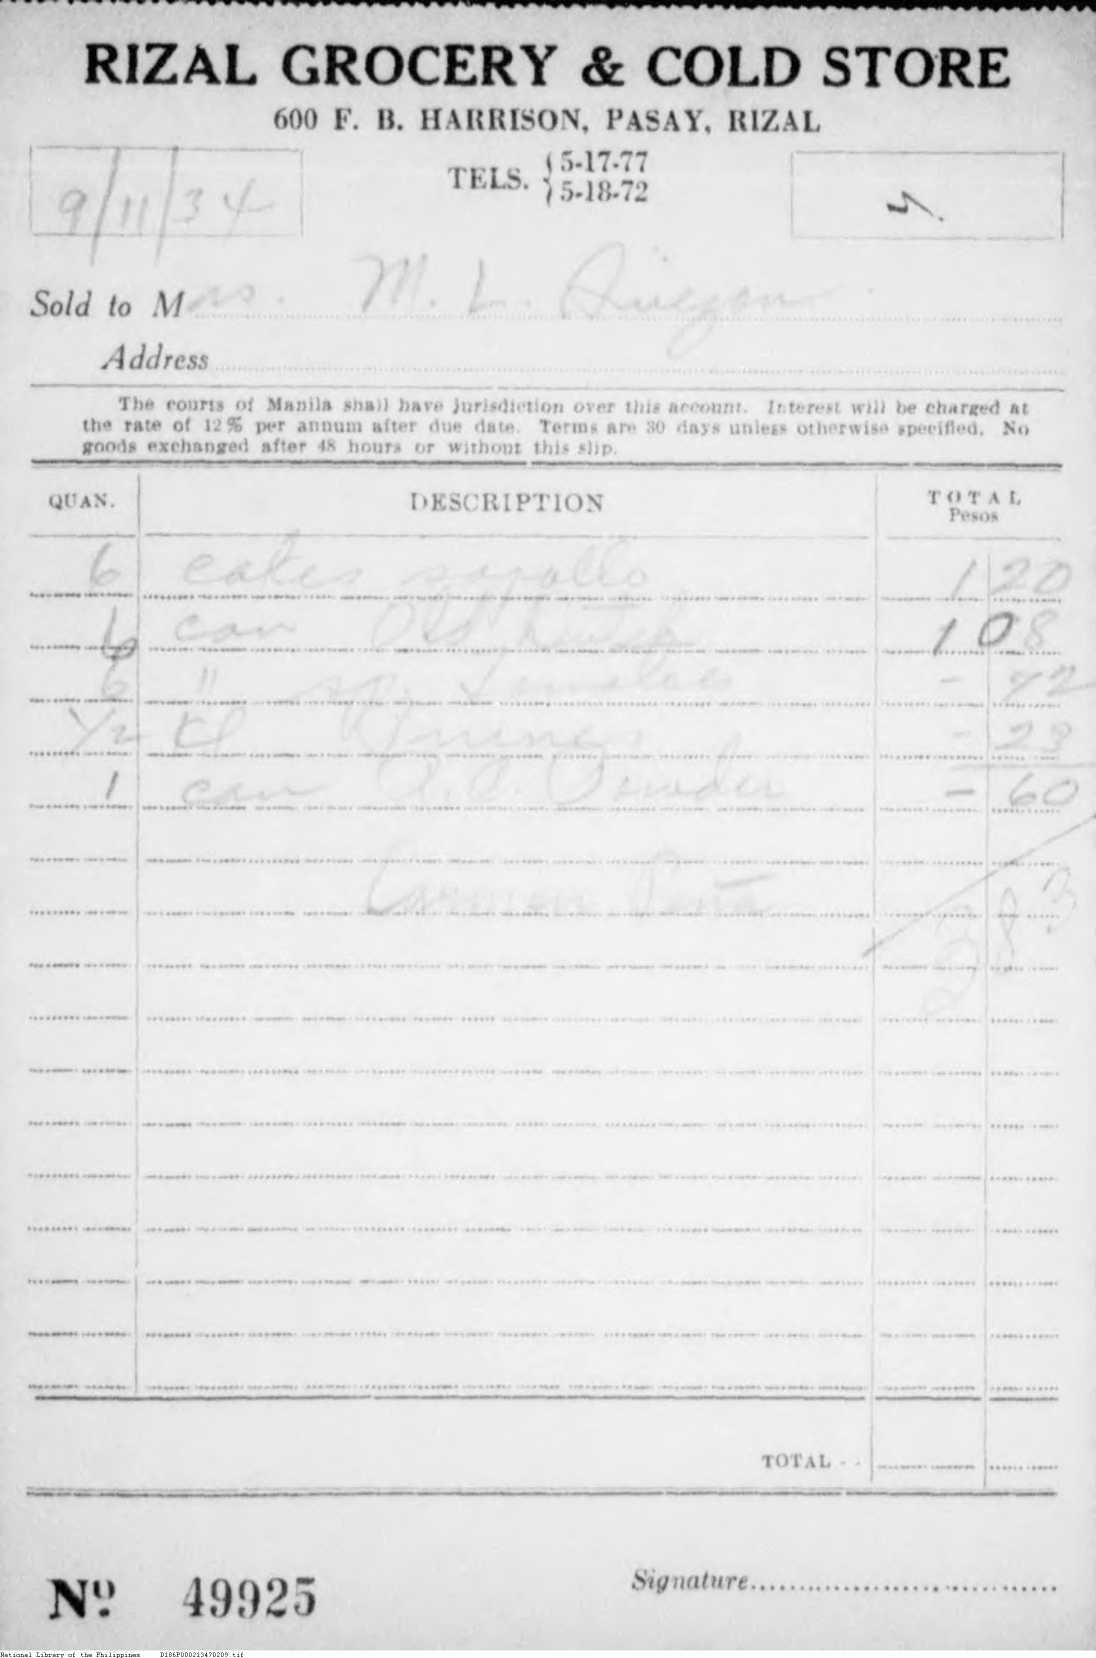 RIZAL GROCERY & COLD STORE
600 F. B. HARRISON, PASAY, RIZAL
TELS. 5-17-77
5-18-72
9/11/34
Sold to Mrs. M. L.
Address
The courts of Manila shall have jurisdiction over this account. Interest will be charged at
the rate of 12% per annum after due date. Terms are 30 days unless otherwise specified. No
goods exchanged after 48 hours or without this slip.
QUAN. DESCRIPTION TOTAL
Pesos
6 1 20
6 can Old 1 08
6 " - 72
1/2 Prunes - 23
1 can Powder - 60
Carmen Peña
3 8 3
TOTAL - -
Nº 49925
Signature
National Library of the Philippines D186P000213470209.tif